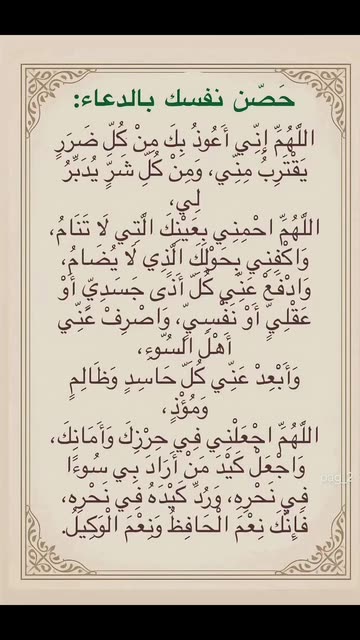 حَصّن نفسك بالدعاء:
اللَّهُمَّ إِنِّي أَعُوذُ بِكَ مِنْ كُلِّ ضَرَرٍ
يَقْتَرِبُ مِنِّي، وَمِنْ كُلِّ شَرٍّ يُدَبَّرُ
لِي،
اللَّهُمَّ احْمِنِي بِعَيْنِكَ الَّتِي لَا تَنَامُ،
وَاكْفِنِي بِحَوْلِكَ الَّذِي لَا يُضَامُ،
وَادْفَعْ عَنِّي كُلَّ أَذًى جَسَدِيٍّ أَوْ
عَقْلِيٍّ أَوْ نَفْسِيٍّ، وَاصْرِفْ عَنِّي
أَهْلَ السُّوْءِ،
وَأَبْعِدْ عَنِّي كُلَّ حَاسِدٍ وَظَالِمٍ
وَمُؤْذٍ،
اللَّهُمَّ اجْعَلْنِي فِي حِرْزِكَ وَأَمَانِكَ،
وَاجْعَلْ كَيْدَ مَنْ أَرَادَ بِي سُوْءًا
فِي نَحْرِهِ، وَرُدَّ كَيْدَهُ فِي نَحْرِهِ،
فَإِنَّكَ نِعْمَ الْحَافِظُ وَنِعْمَ الْوَكِيلُ.